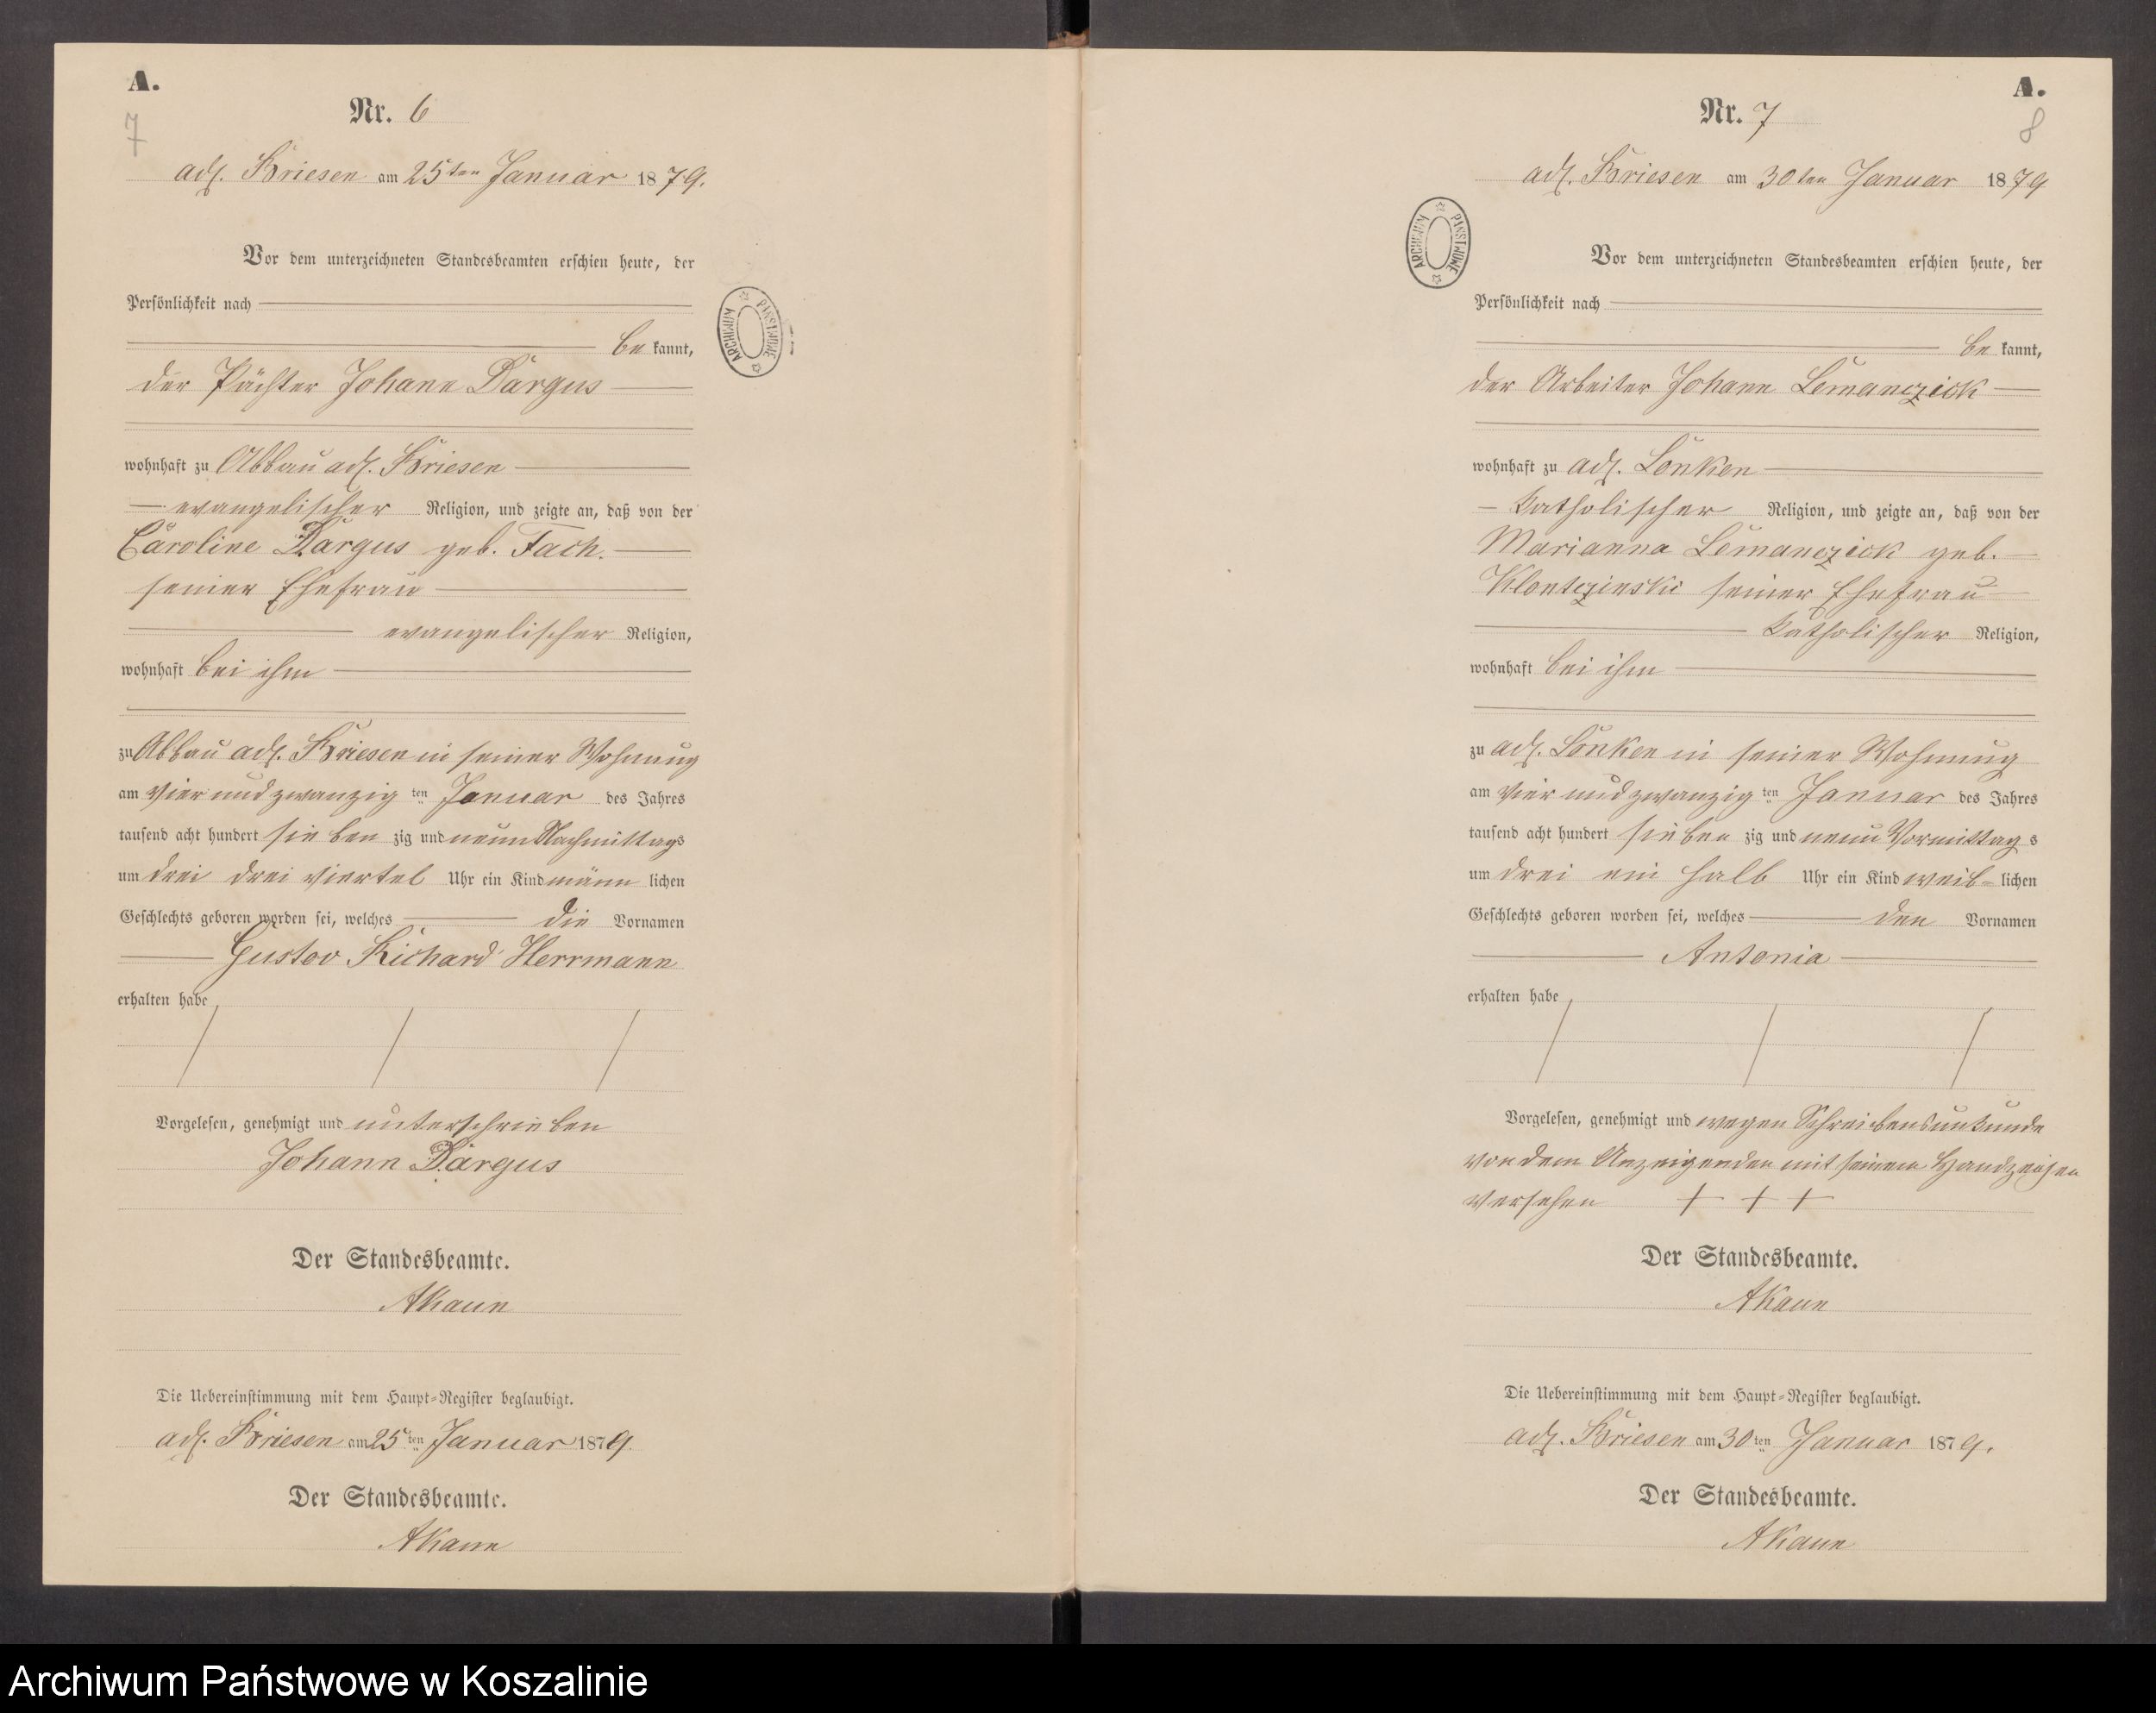 A.
7
Nr. 6
adl. Briesen am 25ten Januar 1879.
Vor dem unterzeichneten Standesbeamten erschien heute, der
Persönlichkeit nach
be kannt,
der Pächter Johann Dargus
wohnhaft zu Abbau adl. Briesen
evangelischer Religion, und zeigte an, daß von der
Caroline Dargus geb. Fach.
seiner Ehefrau
evangelischer Religion,
wohnhaft bei ihm
zu Abbau adl. Briesen in seiner Wohnung
am vier und zwanzig ten Januar des Jahres
tausend acht hundert sieben zig und neun Nachmittags
um drei drei viertel Uhr ein Kind männ lichen
Geschlechts geboren worden sei, welches die Vornamen
Gustav Richard Herrmann
erhalten habe
Vorgelesen, genehmigt und unterschrieben
Johann Dargus
Der Standesbeamte.
AKaun
Die Uebereinstimmung mit dem Haupt-Register beglaubigt.
adl. Briesen am 25 ten Januar 1879.
Der Standesbeamte.
AKaun
ARCHIWUM PAŃSTWOWE
A.
8
Nr. 7
adl. Briesen am 30ten Januar 1879
ARCHIWUM PAŃSTWOWE
Vor dem unterzeichneten Standesbeamten erschien heute, der
Persönlichkeit nach
be kannt,
der Arbeiter Johann Lemanczick
wohnhaft zu adl. Lonken
Katholischer Religion, und zeigte an, daß von der
Marianna Lemanczick geb.
Klontczinski seiner Ehefrau
Katholischer Religion,
wohnhaft bei ihm
zu adl. Lonken in seiner Wohnung
am vier und zwanzig ten Januar des Jahres
tausend acht hundert sieben zig und neun Vormittag s
um drei ein halb Uhr ein Kind weib- lichen
Geschlechts geboren worden sei, welches den Vornamen
Antonia
erhalten habe
Vorgelesen, genehmigt und wegen Schreibensunkunde
von dem Anzeigenden mit seinem Handzeichen
versehen + + +
Der Standesbeamte.
AKaun
Die Uebereinstimmung mit dem Haupt-Register beglaubigt.
adl. Briesen am 30 ten Januar 1879.
Der Standesbeamte.
AKaun
Archiwum Państwowe w Koszalinie